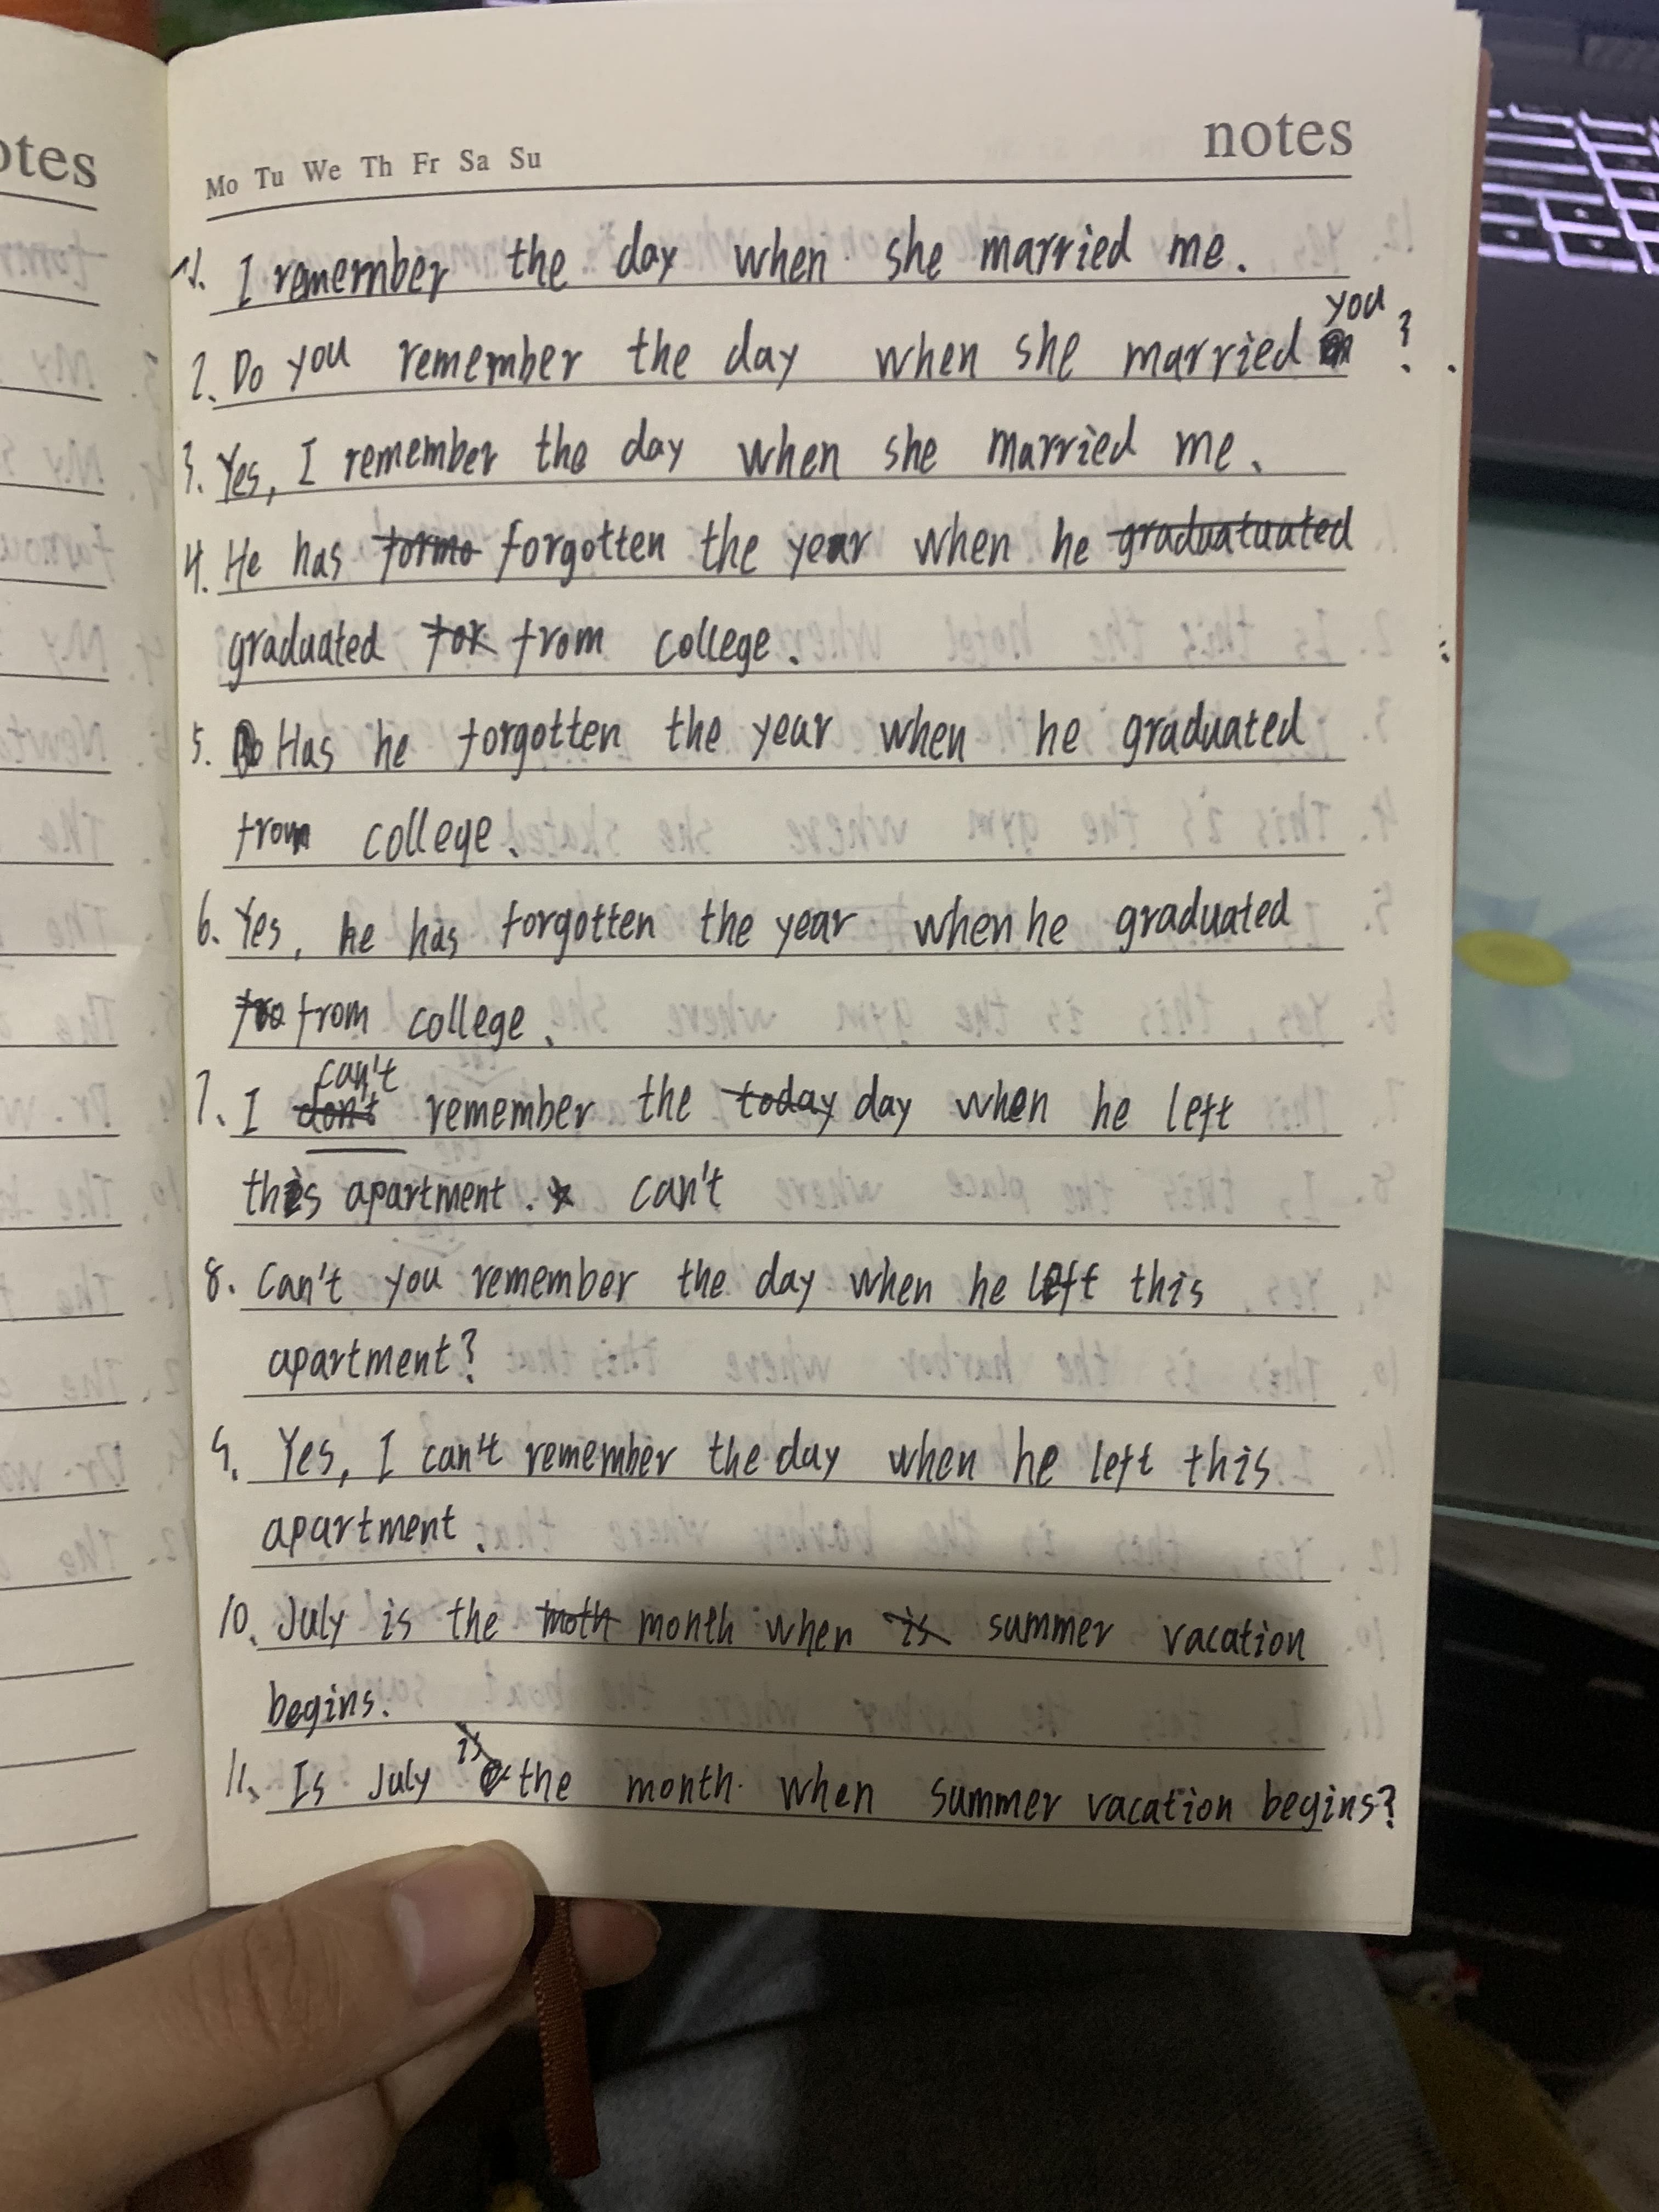 otes
Mo Tu We Th Fr Sa Su
notes
1. I remember the day when she married me.
2. Do you remember the day when she married you ?
3. Yes, I remember the day when she married me.
4. He has forgotten the year when he graduatuated
graduated from college.
5. Has he forgotten the year when he graduated
from college.
6. Yes, he has forgotten the year when he graduated
from college.
7. I don't can't remember the today day when he left
this apartment. can't
8. Can't you remember the day when he left this
apartment?
9. Yes, I can't remember the day when he left this
apartment.
10. July is the moth month when is summer vacation
begins.
11. Is July is the month when summer vacation begins?